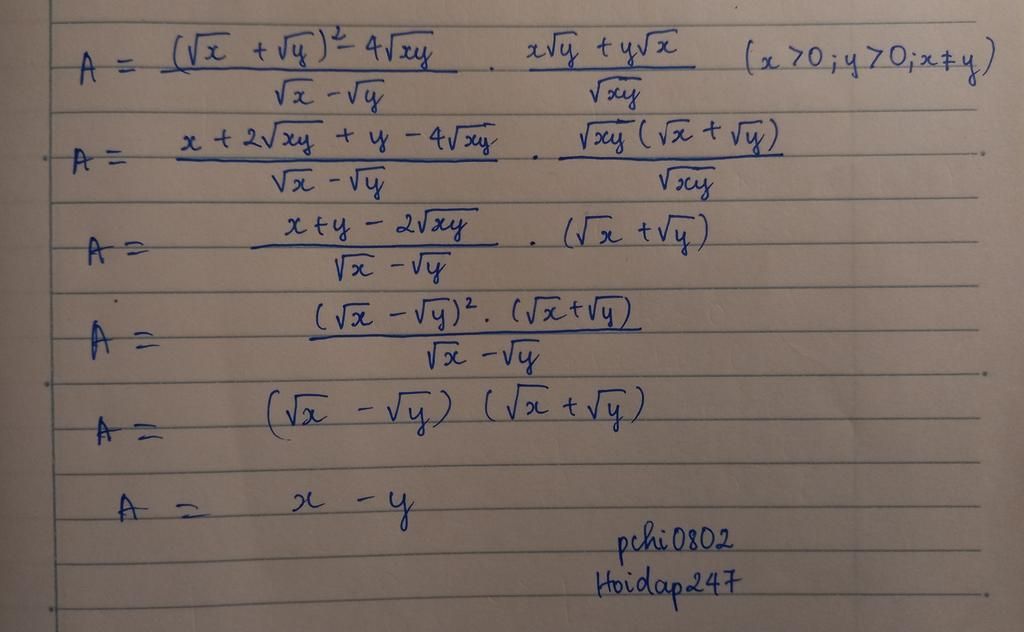 A = \frac{(\sqrt{x} + \sqrt{y})^2 - 4\sqrt{xy}}{\sqrt{x} - \sqrt{y}} \cdot \frac{x\sqrt{y} + y\sqrt{x}}{\sqrt{xy}} (x > 0; y > 0; x ≠ y)
A = \frac{x + 2\sqrt{xy} + y - 4\sqrt{xy}}{\sqrt{x} - \sqrt{y}} \cdot \frac{\sqrt{xy}(\sqrt{x} + \sqrt{y})}{\sqrt{xy}}
A = \frac{x + y - 2\sqrt{xy}}{\sqrt{x} - \sqrt{y}} \cdot (\sqrt{x} + \sqrt{y})
A = \frac{(\sqrt{x} - \sqrt{y})^2 \cdot (\sqrt{x} + \sqrt{y})}{\sqrt{x} - \sqrt{y}}
A = (\sqrt{x} - \sqrt{y}) (\sqrt{x} + \sqrt{y})
A = x - y
pchi0802
Hoidap247